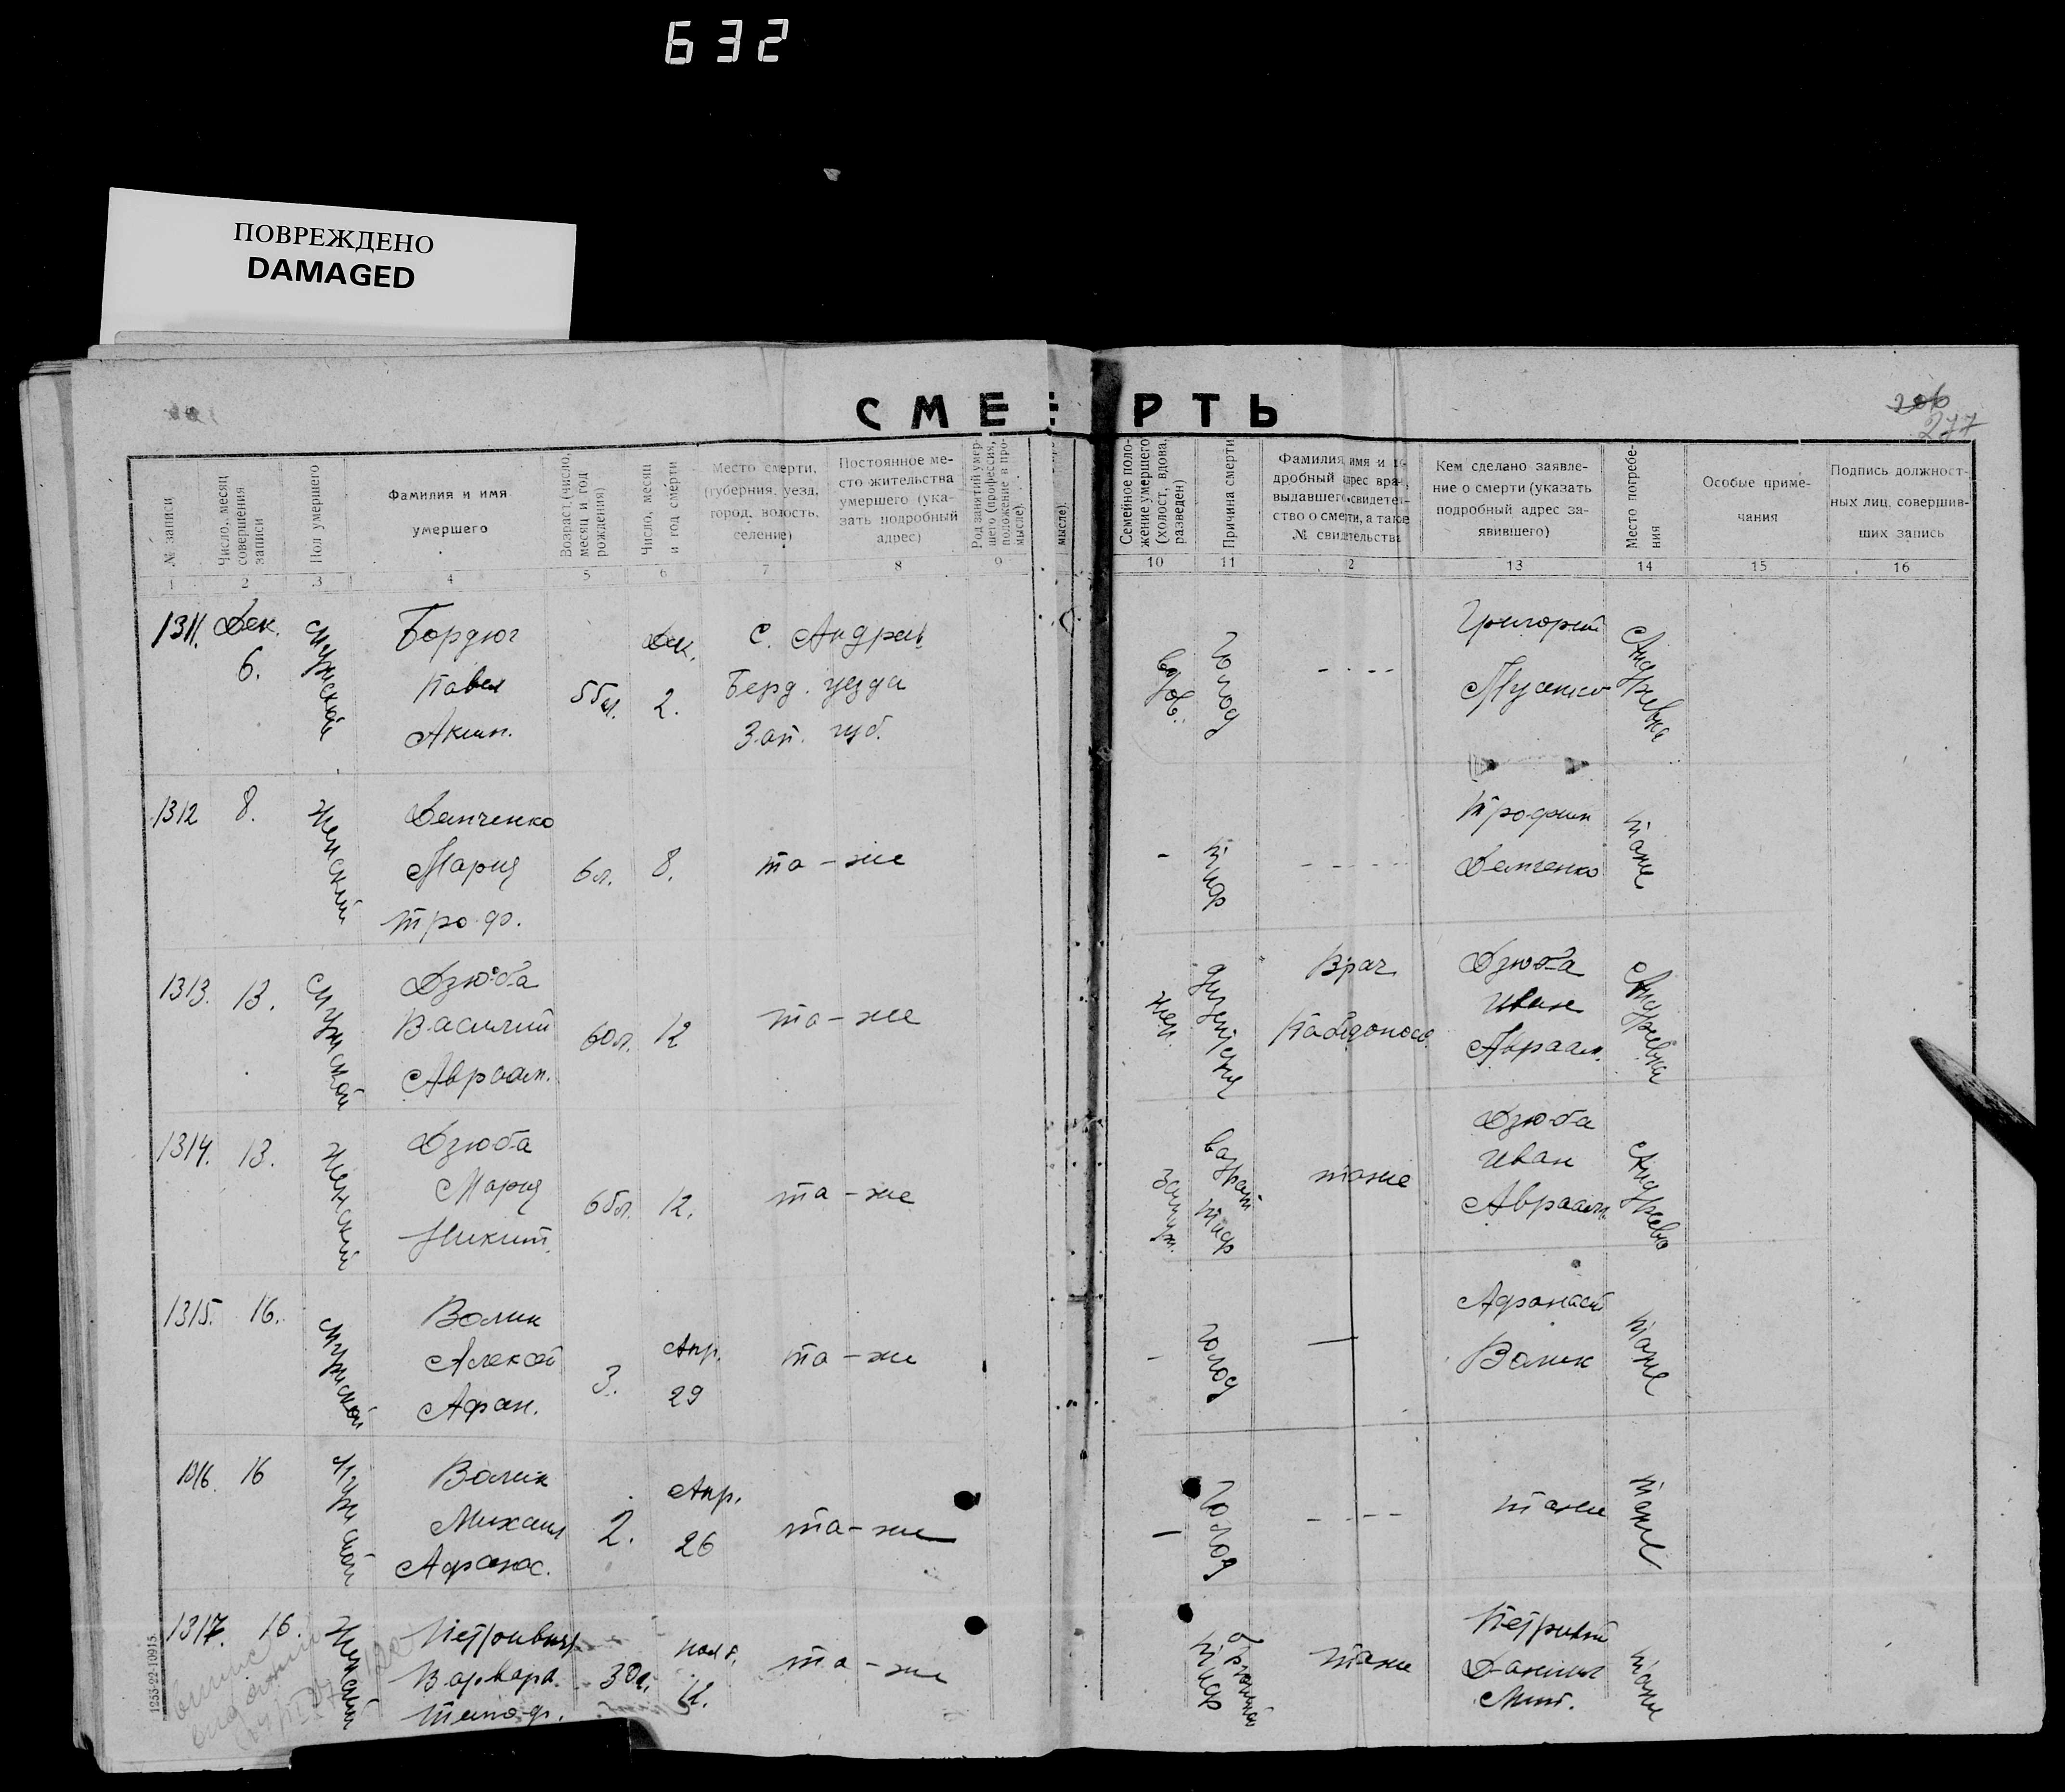 632
ПОВРЕЖДЕНО
DAMAGED
СМЕРТЬ
206
277
№ записи
Число, месяц совершения записи
Пол умершего
Фамилия и имя
умершего
Возраст, (число, месяц и год рождения)
Число, месяц и год смерти
Место смерти,
(губерния, уезд,
город, волость,
селение)
Постоянное ме-
сто жительства
умершего (ука-
зать подробный
адрес)
Род занятий умер-
шего (профессия,
положение в про-
мысле).
мысле).
Семейное поло-
жение умершего
(холост, вдова,
разведен)
Причина смерти
Фамилия имя и по-
дробный адрес врач,
выдавшег. свидетел-
ство о смерти, а также
№ свидетельства
Кем сделано заявле-
ние о смерти (указать
подробный адрес за-
явившего)
Место погребе-
ния
Особые приме-
чания
Подпись должност-
ных лиц, совершив-
ших запись
1 2 3 4 5 6 7 8 9 10 11 2 13 14 15 16
1311. Дек. 6. Мужской
Бордюг
Павел
Аким.
55л. Дек. 2.
С. Андреев.
Берд. уезда
Зап. губ.
вдов. Голод - - - -
Григорий
Мусиенко
Андреевка
1312 8. Женский
Демченко
Мария
Троф.
6л. 8. та-же
- Тиф - - - - -
Трофим
Демченко
также
1313. 13. Мужской
Дзюба
Василий
Авраам.
60л. 12 та-же
жен. дизентерия
Врач
Дзюба
Иван
Авраам.
Андреевка
1314. 13. Женский
Дзюба
Мария
Никит.
65л. 12. та-же
Замуж. возврат тиф
также
Дзюба
Иван
Авраам.
Андреевка
1315. 16. Мужской
Волик
Алексей
Афан.
3. Апр. 29 та-же
- голод —
Афанасий
Волик
также
1316. 16 Мужской
Волик
Михаил
Афанас.
2. Апр. 26 та-же
- голод - - - -
также
также
1317. 16. Женский
Петривная
Варвара
Тимоф.
30л. нояб. 12. та-же
брюшной тиф
также
Петривный
Даниил
Мит.
также
1253-22-10915